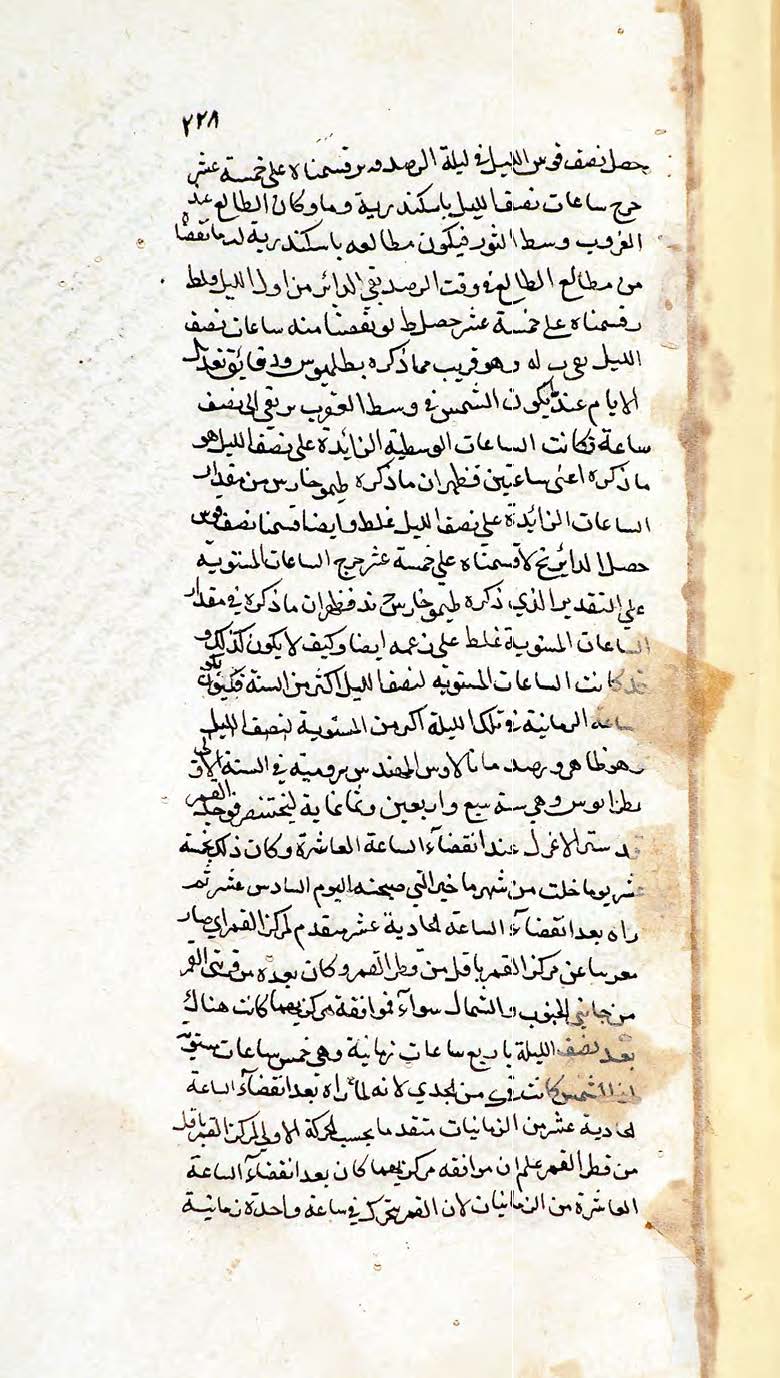 ٢٢٨
حصل نصف قوس الليل في ليلة الرصد قسمناه على خمسة عشر
خرج ساعات نصف الليل باسكندرية وما وكان الطالع عند
الغروب وسط الثور فيكون مطالعه باسكندرية
من مطالع الطالع في وقت الرصد بقي الدائر من اول الليل
قسمناه على خمسة عشر حصل نقصنا منه ساعات نصف
الليل بقي ب له وهو قريب مما ذكره بطلميوس ودقائق تعديل
الايام عند كون الشمس في وسط العقرب ترتقي الى نصف
ساعة فكانت الساعات الوسطية الزائدة على نصف الليل هو
ما ذكره اعني ساعتين فظهر ان ما ذكره طيموخارس من مقدار
الساعات الزائدة على نصف الليل غلط وايضا قسمنا نصف قوس
حصل الدائر قسمناه على خمسة عشر خرج الساعات المستوية
على التقدير الذي ذكره طيموخارس فظهر ان ما ذكره في مقدار
الساعات المستوية غلط على زعمه ايضا وكيف لا يكون كذلك و
قد كانت الساعات المستويه لنصف الليل اكثر من الستة فكيف يكون
ساعة الزمانية في تلك الليلة اكبر من المستوية لنصف الليل
وهو ظاهر ورصد مانالاوس المهندس برومية في السنة الاولى
وهي سنة خمس واربعين وثمانماية لبختنصر فوجد القمر
قد ستر الاعزل عند انقضاء الساعة العاشرة وكان ذلك خمسة
عشر يوما خلت من شهر ماخير التي صبحته اليوم السادس عشر ثم
راه بعد انقضاء الساعة الحادية عشر متقدم لمركز القمر اي صار
عن مركز القمر باقل من قطر القمر وكان بعده من قرني القمر
من جانبي الجنوب والشمال سواء فموافقة مركزيهما كانت هناك
بعد نصف الليلة باربع ساعات زمانية وهي خمس ساعات مستوية
الشمس كانت في من الجدي لانه لما راه بعد انقضاء الساعة
الحادية عشر من الزمانيات متقدما بحسب الحركة الاولى لمركز القمر باقل
من قطر القمر علم ان موافقه مركزيهما كان بعد انقضاء الساعة
العاشرة من الزمانيات لان القمر يتحرك في ساعة واحدة زمانية